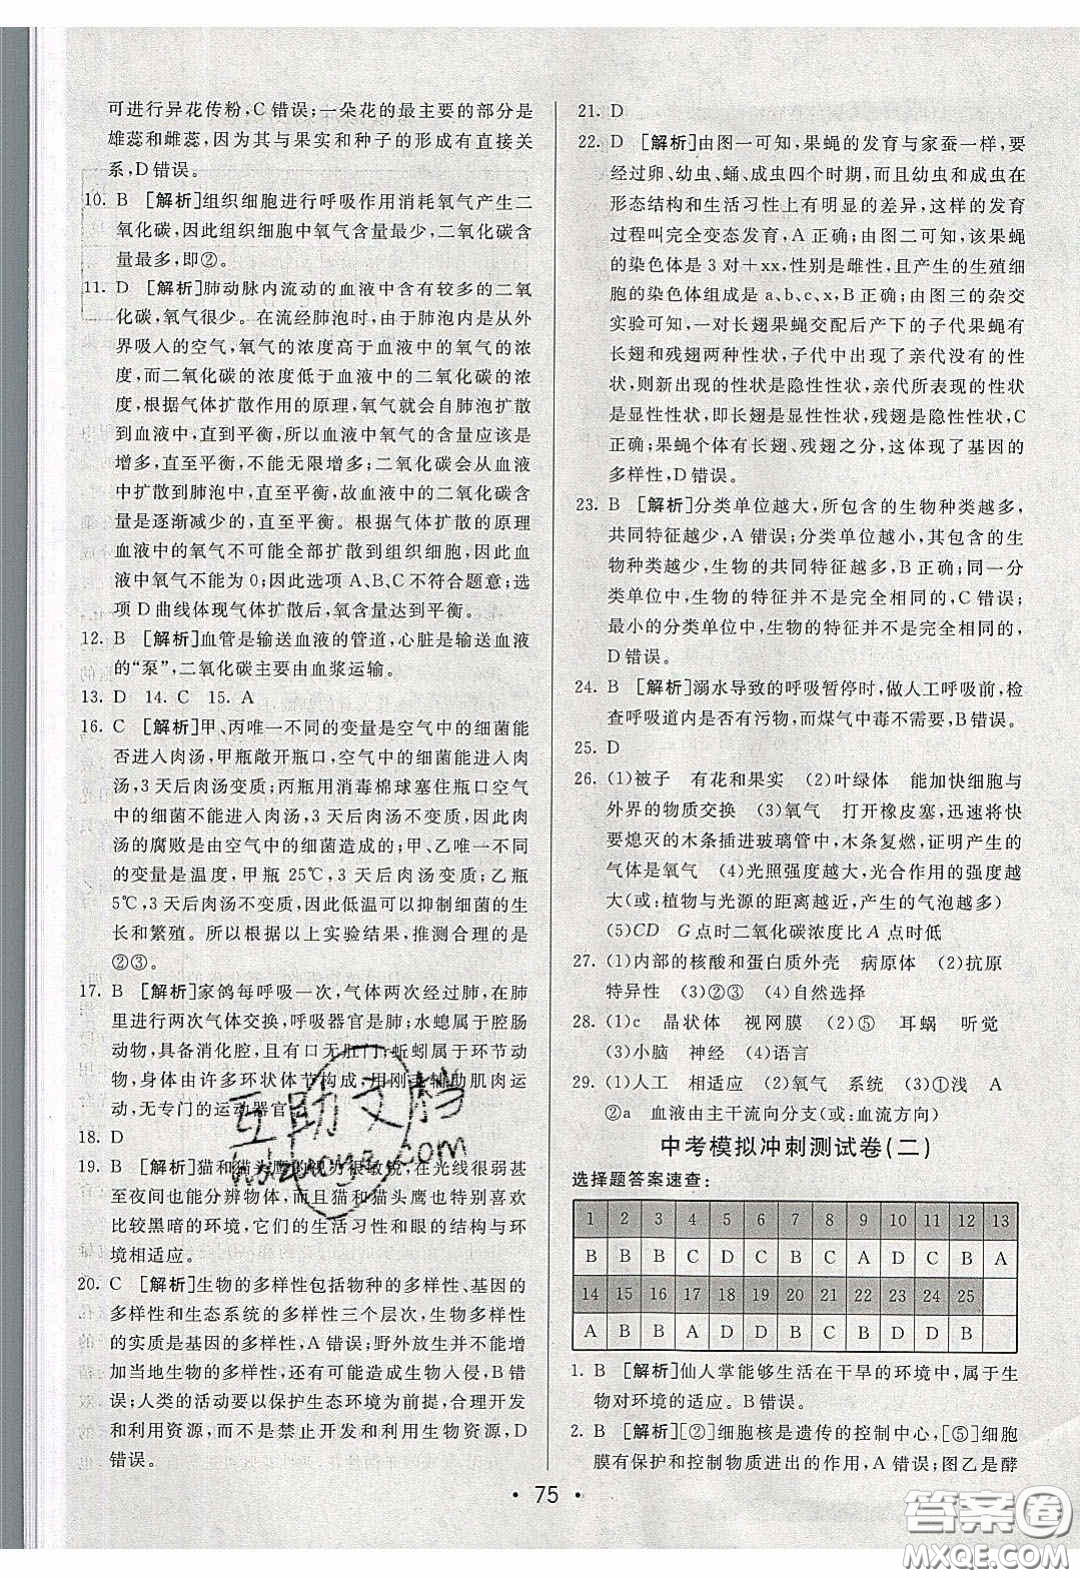 可进行异花传粉,C错误;一朵花的最主要的部分是
雄蕊和雌蕊,因为其与果实和种子的形成有直接关
系,D错误。
10. B [解析]组织细胞进行呼吸作用消耗氧气产生二
氧化碳,因此组织细胞中氧气含量最少,二氧化碳含
量最多,即②。
11. D [解析]肺动脉内流动的血液中含有较多的二氧
化碳,氧气很少。在流经肺泡时,由于肺泡内是从外
界吸入的空气,氧气的浓度高于血液中的氧气的浓
度,而二氧化碳的浓度低于血液中的二氧化碳的浓
度,根据气体扩散作用的原理,氧气就会自肺泡扩散
到血液中,直到平衡,所以血液中氧气的含量应该是
增多,直至平衡,不能无限增多;二氧化碳会从血液
中扩散到肺泡中,直至平衡,故血液中二氧化碳含量
是逐渐减少的,直至平衡。根据气体扩散的原理
血液中的氧气不可能全部扩散到组织细胞,因此血
液中氧气不能为0;因此选项A、B、C不符合题意;选
项D曲线体现气体扩散后,氧含量达到平衡。
12. B [解析]血管是输送血液的管道,心脏是输送血液
的“泵”,二氧化碳主要由血浆运输。
13. D 14. C 15. A
16. C [解析]甲、丙唯一不同的变量是空气中的细菌能
否进入肉汤,甲瓶敞开瓶口,空气中的细菌能进入肉
汤,3天后肉汤变质;丙瓶用消毒棉球塞住瓶口,空气
中的细菌不能进入肉汤,3天后肉汤不变质,所以使
肉汤的腐败是由空气中的细菌造成的;甲、乙唯一不
同的变量是温度,甲瓶25℃,3天后肉汤变质;乙瓶
5℃,3天后肉汤不变质,因此低温可以抑制细菌的生
长和繁殖。所以根据以上实验结果,推测合理的是
②③。
17. B [解析]家鸽每呼吸一次,气体两次经过肺,在肺
里进行两次气体交换,呼吸器官是肺;水螅属于腔肠
动物,具备消化腔,且有口无肛门;蚯蚓属于环节动
物,身体由许多环状体节构成,用刚毛辅助肌肉运
动,无专门的运动器官
18. D
19. B [解析]猫和猫头鹰的视力很敏锐,在光线很弱甚
至夜间也能分辨物体,而且猫和猫头鹰也特别喜欢
比较黑暗的环境,它们的生活习性和眼的结构与环
境相适应。
20. C [解析]生物的多样性包括物种的多样性、基因的
多样性和生态系统的多样性三个层次,生物多样性
的实质是基因的多样性,A错误;野外放生并不能增
加当地生物的多样性,还有可能造成生物入侵,B错
误;人类的活动要以保护生态环境为前提,合理开发
和利用资源,而不是禁止开发和利用生物资源,D
错误。
21. D
22. D [解析]由图一可知,果蝇的发育与家蚕一样,要
经过卵、幼虫、蛹、成虫四个时期,而且幼虫与成虫在
形态结构和生活习性上有明显的差异,这样的发育
过程叫完全变态发育,A正确;由图二可知,该果蝇
的染色体是3对+xx,性别是雌性,且产生的生殖细
胞的染色体组成是a、b、c、x,B正确;由图三的杂交
实验可知,一对长翅果蝇交配后产下的子代果蝇有
长翅和残翅两种性状,子代中出现了亲代没有的性
状,则新出现的性状是隐性性状,亲代所表现的性状
是显性性状,即长翅是显性性状,残翅是隐性性状,C
正确;果蝇个体有长翅、残翅之分,这体现了基因的
多样性,D错误。
23. B [解析]分类单位越大,所包含的生物种类越多,
共同特征越少,A错误;分类单位越小,其包含的生
物种类越少,生物的共同特征越多,B正确;同一分
类单位中,生物的特征并不是完全相同的,C错误;
最小的分类单位中,生物的特征并非完全相同的,
D错误。
24. B [解析]溺水导致的呼吸暂停时,做人工呼吸前,检
查呼吸道内是否有污物,而煤气中毒不需要,B错误。
25. D
26. (1)被子 有花和果实 (2)叶绿体 能加快细胞与
外界的物质交换 (3)氧气 打开橡皮塞,迅速将快
要熄灭的木条插进玻璃管中,木条复燃,证明产生的
气体是氧气 (4)光照强度越大,光合作用的强度越
大(或:植物与光源的距离越近,产生的气泡越多)
(5)CD G点时二氧化碳浓度比A点时低
27. (1)内部的核酸和蛋白质外壳 病原体 (2)抗原
特异性 (3)②③ (4)自然选择
28. (1)c 晶状体 视网膜 (2)⑤ 耳蜗 听觉
(3)小脑 神经 (4)语言
29. (1)人工 相适应 (2)氧气 系统 (3)①浅 A
②a 血液由主干流向分支(或:血流方向)
中考模拟冲刺测试卷(二)
选择题答案速查:
1 2 3 4 5 6 7 8 9 10 11 12 13
B B B C D C B C A D C B A
14 15 16 17 18 19 20 21 22 23 24 25
A B B A D D B C A C D B
1. B [解析]仙人掌能够生活在干旱的环境中,属于生
物对环境的适应。B错误。
2. B [解析][②]细胞核是遗传的控制中心,[⑤]细胞
膜有保护和控制物质进出的作用,A错误;图乙是酵
• 75 •
互助文档
hdzuoye.com
答案圈
MXQE.COM